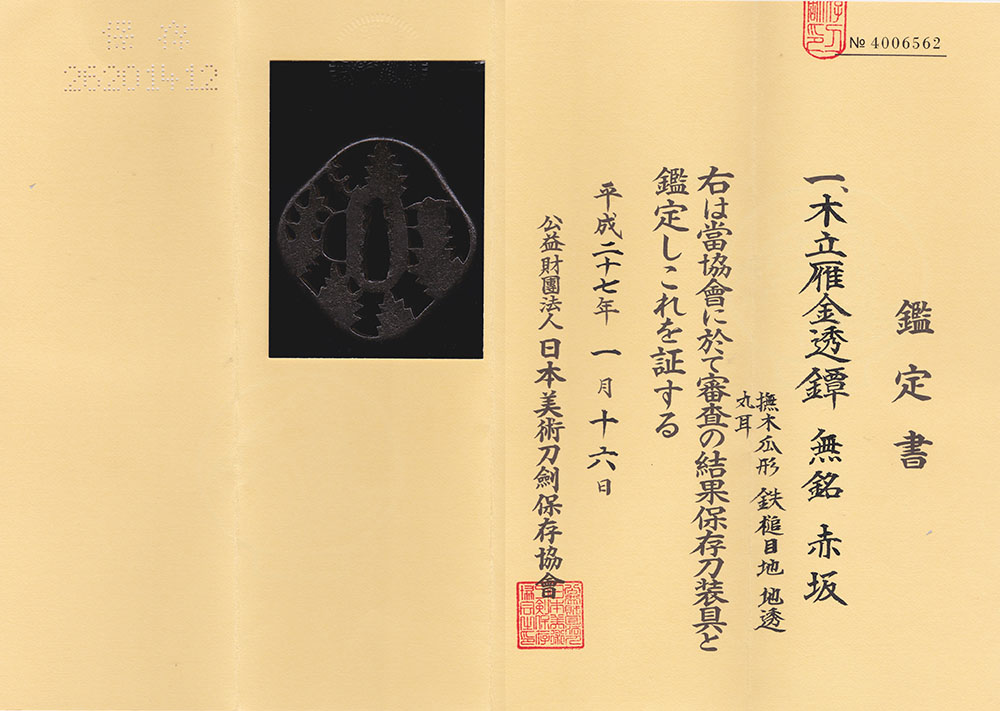 № 4006562
鑑定書
一、木立雁金透鐔 無銘 赤坂
撫木瓜形 鉄槌目地 地透
丸耳
右は當協會に於て審査の結果保存刀装具と
鑑定しこれを証する
平成二十七年一月十六日
公益財團法人 日本美術刀劍保存協會
保存
26201412